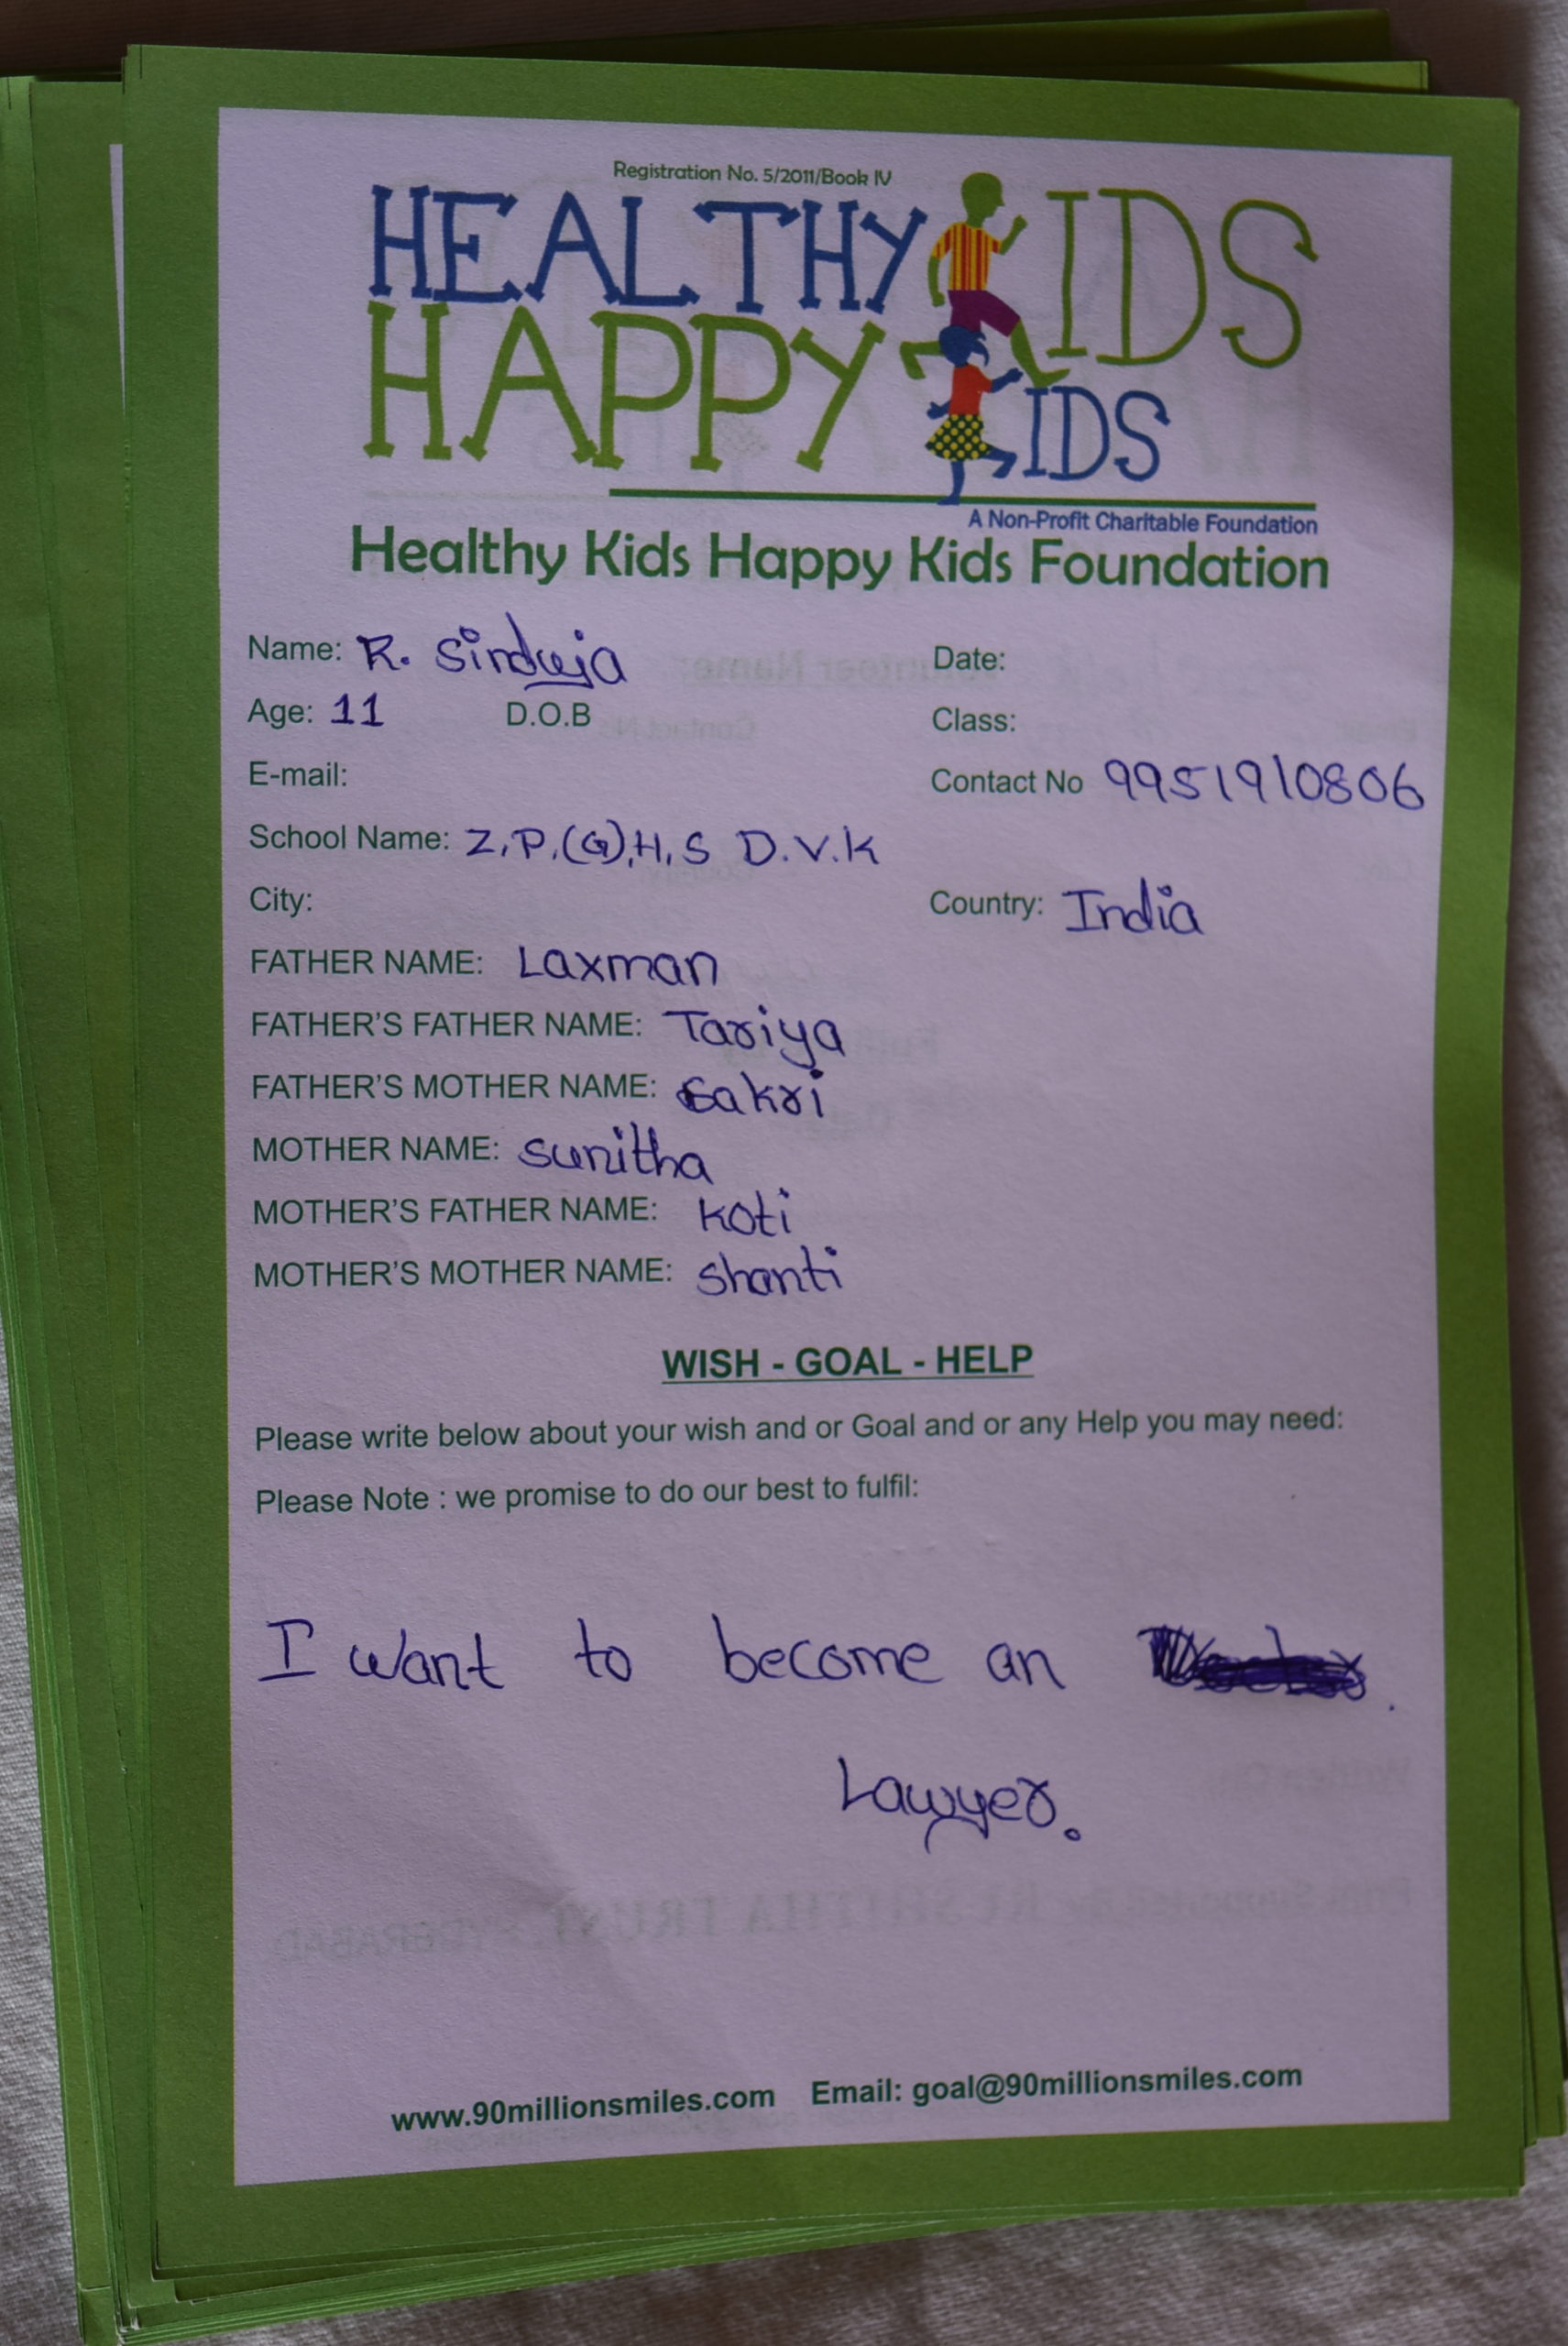 Registration No. 5/2011/Book IV
HEALTHY KIDS
HAPPY KIDS
A Non-Profit Charitable Foundation
Healthy Kids Happy Kids Foundation
Name: R. Sinduja Date:
Age: 11 D.O.B Class:
E-mail: Contact No 9951910806
School Name: Z.P.(G).H.S D.V.K
City: Country: India
FATHER NAME: Laxman
FATHER'S FATHER NAME: Tariya
FATHER'S MOTHER NAME: Sakri
MOTHER NAME: Sunitha
MOTHER'S FATHER NAME: Koti
MOTHER'S MOTHER NAME: Shanti
WISH - GOAL - HELP
Please write below about your wish and or Goal and or any Help you may need:
Please Note : we promise to do our best to fulfil:
I want to become an
Lawyer.
www.90millionsmiles.com Email: goal@90millionsmiles.com